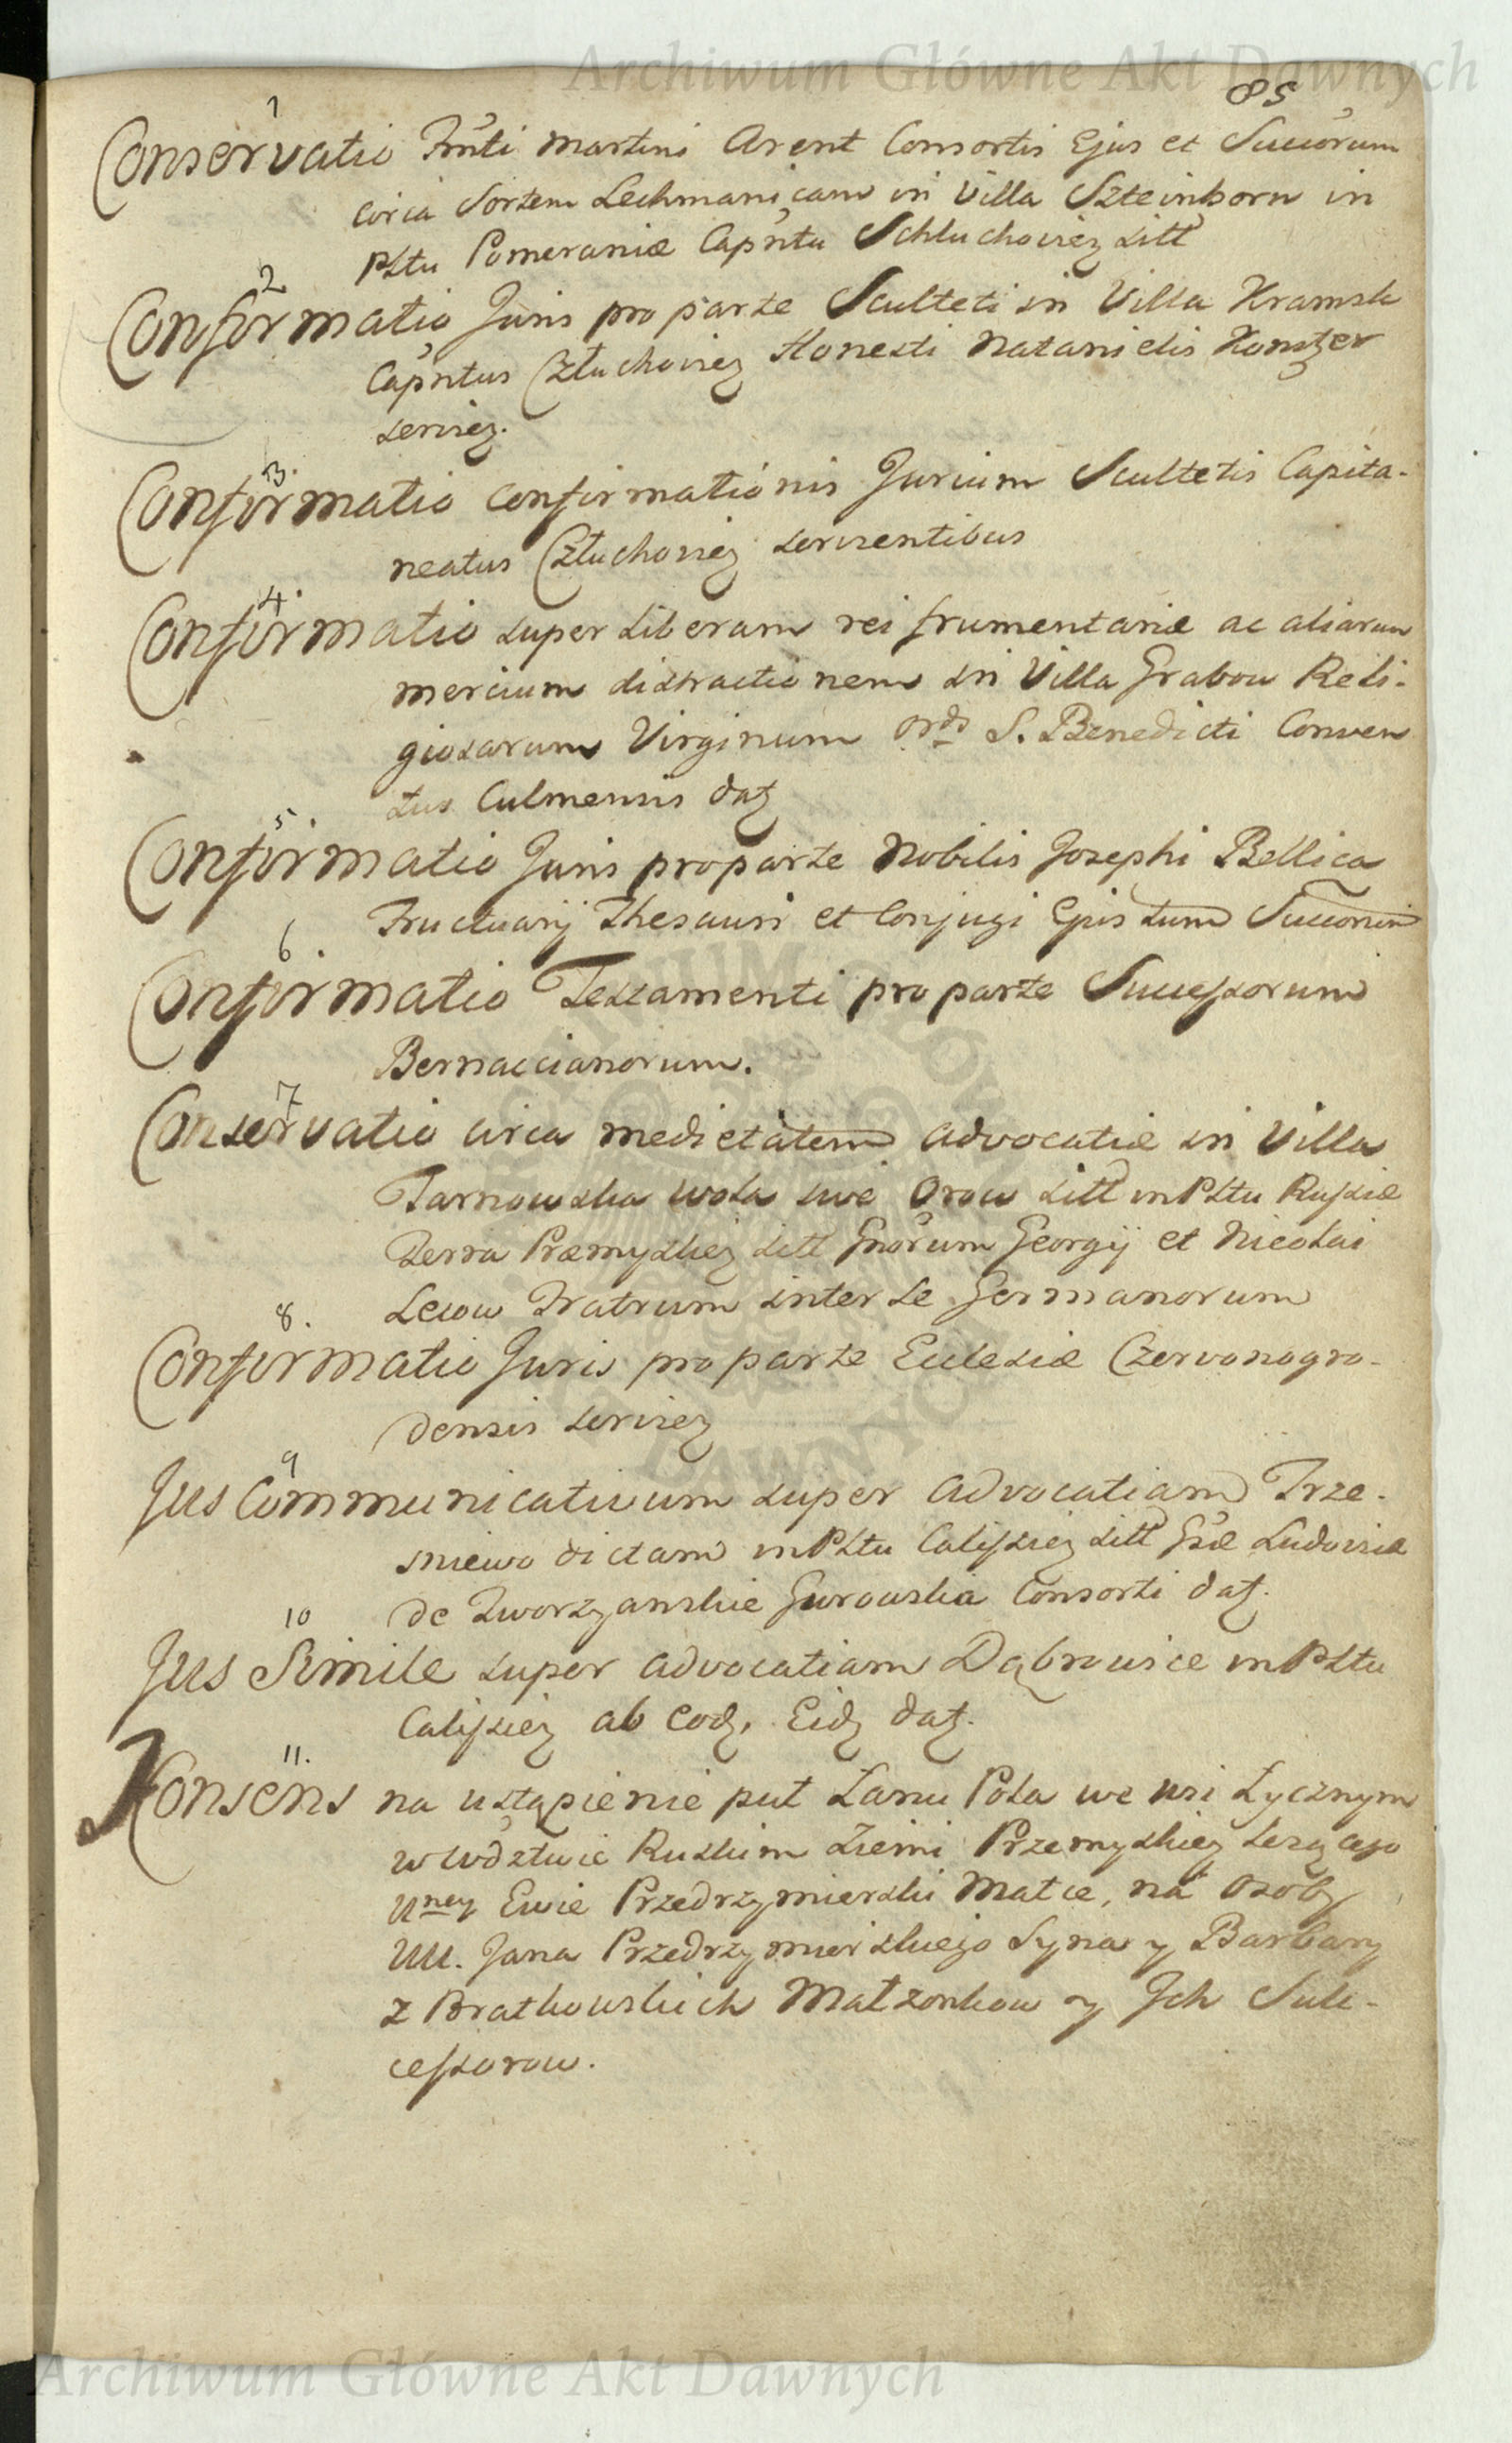 Archiwum Główne Akt Dawnych
85
1
Conservatio Fmti Martini Arent Consortis Ejus et Succorum
circa Sortem Lechmanicam in Villa Szteinborn in
Pltu Pomeraniæ Capntu Schluchovien Sitt
2
Confirmatio Juris pro parte Sculteti in Villa Kramsk
Capntus Człuchovien Honesti Natanielis Konitzer
servien.
3.
Confirmatio confirmationis Jurium Scultetis Capita-
neatus Człuchovien servientibus
4.
Confirmatio super liberam rei frumentariæ ac aliarum
mercium distractionem in Villa Grabow Reli-
giosarum Virginum Ords S. Benedicti Conven
tus Culmensis dat
5
Confirmatio Juris pro parte Nobilis Josephi Bellica
Fructuarij Thesauri et Conjugi Ejus tum
6.
Confirmatio Testamenti pro parte Successorum
Bernaccianorum.
7
Conservatio circa medietatem advocatiæ in Villa
Tarnowska wola sive Orow Sitt in Pltu Russiæ
Terra Præmyslien Sitt Gnorum Georgij et Nicolai
Lewow Fratrum inter se Germanorum
8.
Confirmatio Juris pro parte Eclesiæ Czervonogro-
densis servien
9
Jus Communicativum super advocatiam Trze-
sniewo dictam in Pltu Calissien Sitt Gsæ Ludovicæ
de Tworzyanskie Gurowska Consorti dat.
10
Jus Simile super advocatiam Dąbrowice in Pltu
Calissien ab eod. Eid dat.
11.
Konsens na ustąpienie puł Łanu Pola we wsi Łycznym
w Wdztwie Ruskim Ziemi Przemyskiey Lezącego
Uney Ewie Przedrzymierski Matce, na Osoby
UU. Jana Przedrzymirskiego Syna y Barbary
z Bratkowskich Małzonkow y Jch Suk-
cessorow.
Archiwum Główne Akt Dawnych